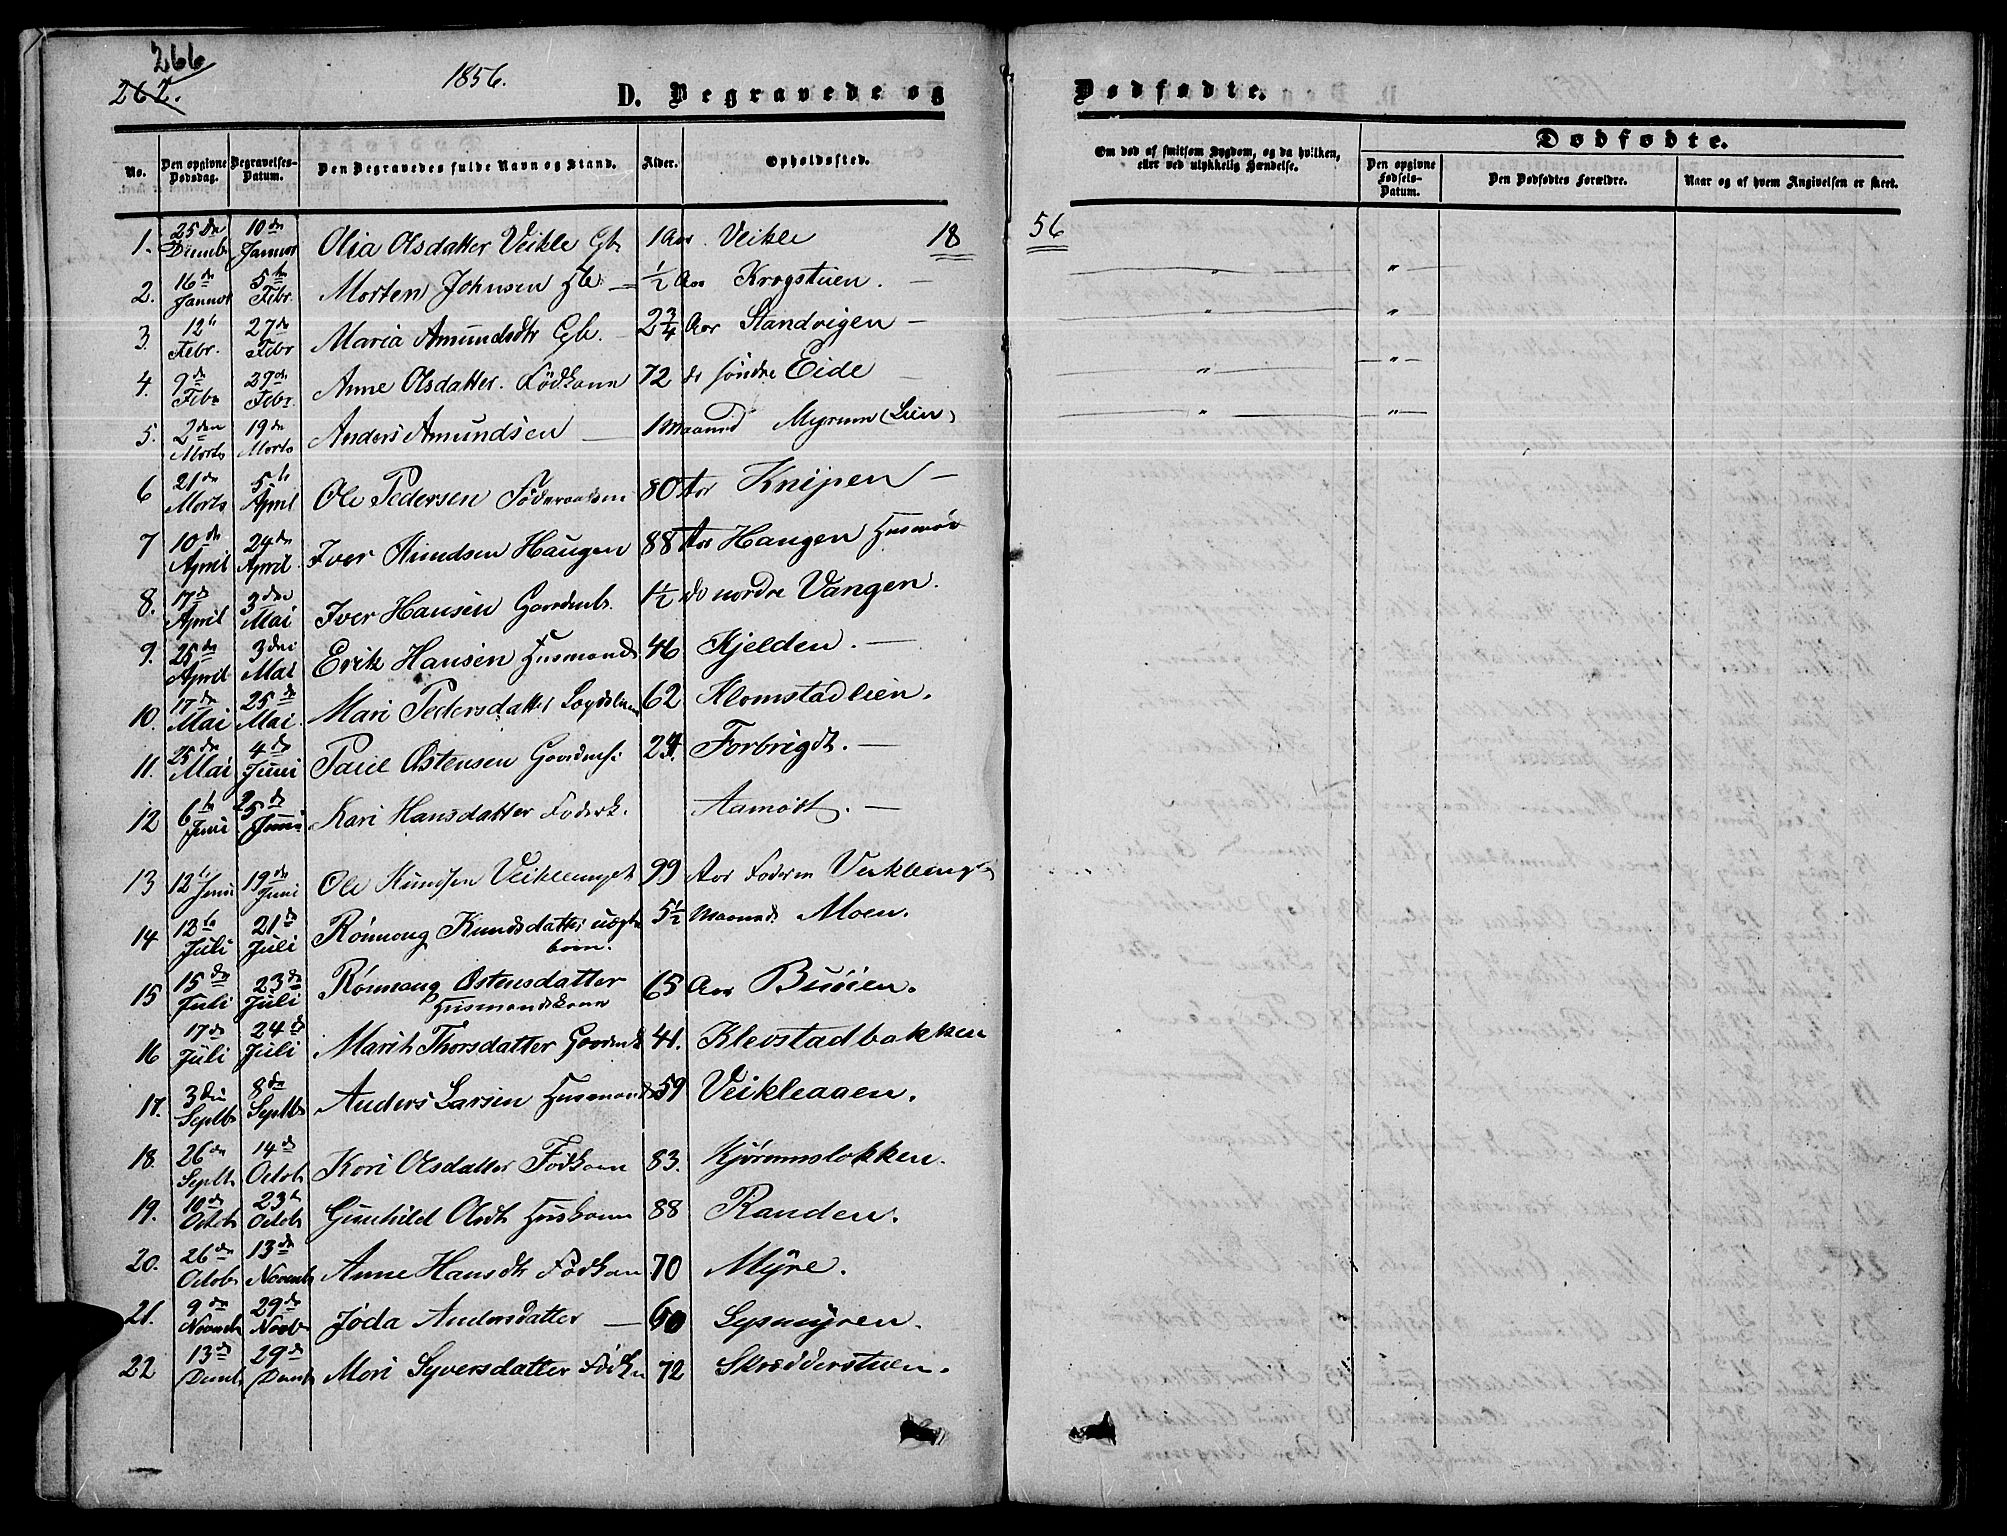 266
262.
1856.
D. Begravede og Dødfødte.
No. Den opgivne Dødsdag. Begravelses-Datum. Den Begravedes fulde Navn og Stand. Alder. Opholdssted. Om død af smitsom Sygdom, og da hvilken, eller ved ulykkelig Hændelse. Dødfødte.
Den opgivne Fødsels-Datum. Den Dødfødtes Forældre. Naar og af hvem Angivelsen er skeet.
1. 25de Decemb 10de Januar Olia Olsdatter Veikle Gb. 1 Aar. Veikle 18 56
2. 16de Januar 5te Febr. Morten Johnsen Hb. — ½ Aar Krogstuen. —
3. 12te Febr. 27de Febr Maria Amundsdtr Gb. 2¾ Aar Standvigen —
4. 9de Febr 29de Febr. Anne Olsdatter. Födkone 72 do söndre Eide
5. 2den Marts 19de Marts Anders Amundsen — 1 Maaned Myrum (Lien)
6 21de Marts 5te April Ole Pedersen Föderaadsm 80 Aar Knipen —
7 10de April 24de April. Iver Knudsen Haugen 88 Aar Haugen
8. 17de April 3die Mai Iver Hansen Gaardmb. 1½ do nordre Vangen.
9. 25de April 3die Mai Erik Hansen Husmand 46 Kjelden. —
10. 17de Mai 25de Mai. Mari Pedersdatter 62 Klomstadlien.
11. 25de Mai 4de Juni Paul Østensen 24. Forbrigdt. —
12 6te Juni 25de Juni Kari Hansdatter Foderk. Aamodt. —
13 12te Juni 19de Juni Ole Knudsen 99 Aar Foderm
14 12te Juli 21de Juli Rönnoug Knudsdatter uægte barn. 5½ Maaned. Moen.
15 15de Juli 23de Juli Rønnoug Østensdatter Husmandskone 65 Aar Buöien.
16 17de Juli 24de Juli Marith Thorsdatter 41. Klevstadbakken
17. 3die Septb 8de Septb Anders Larsen Husmand 59 Veikleaaen.
18. 26de Septb. 14de Octob Kari Olsdatter Födkone 83. Kjörumslokken.
19. 10de Octob 23de Octob Gunhild Olsdt Huskone 88 Randen.
20. 26de Octob 13de Novemb Anne Hansdt Fodkone 70 Myre.
21. 9de Novemb 29de Novb Jøda Andersdatter — 60
22 13de Decemb 29de Decemb Mari Syversdatter Fødk 72 Skrædderstuen.